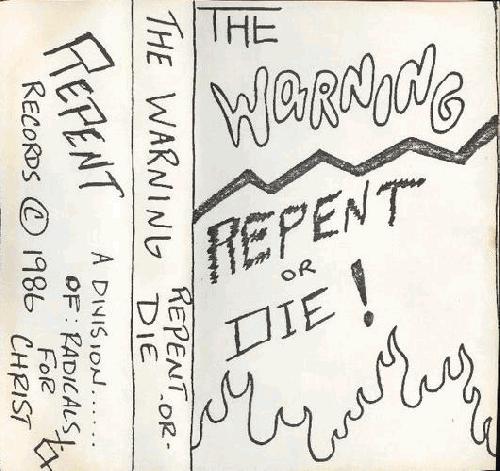 REPENT
RECORDS © 1986
A DIVISION......
OF: RADICALS
FOR
CHRIST
THE WARNING
REPENT-OR-
DIE
THE
WARNING
REPENT
OR
DIE!